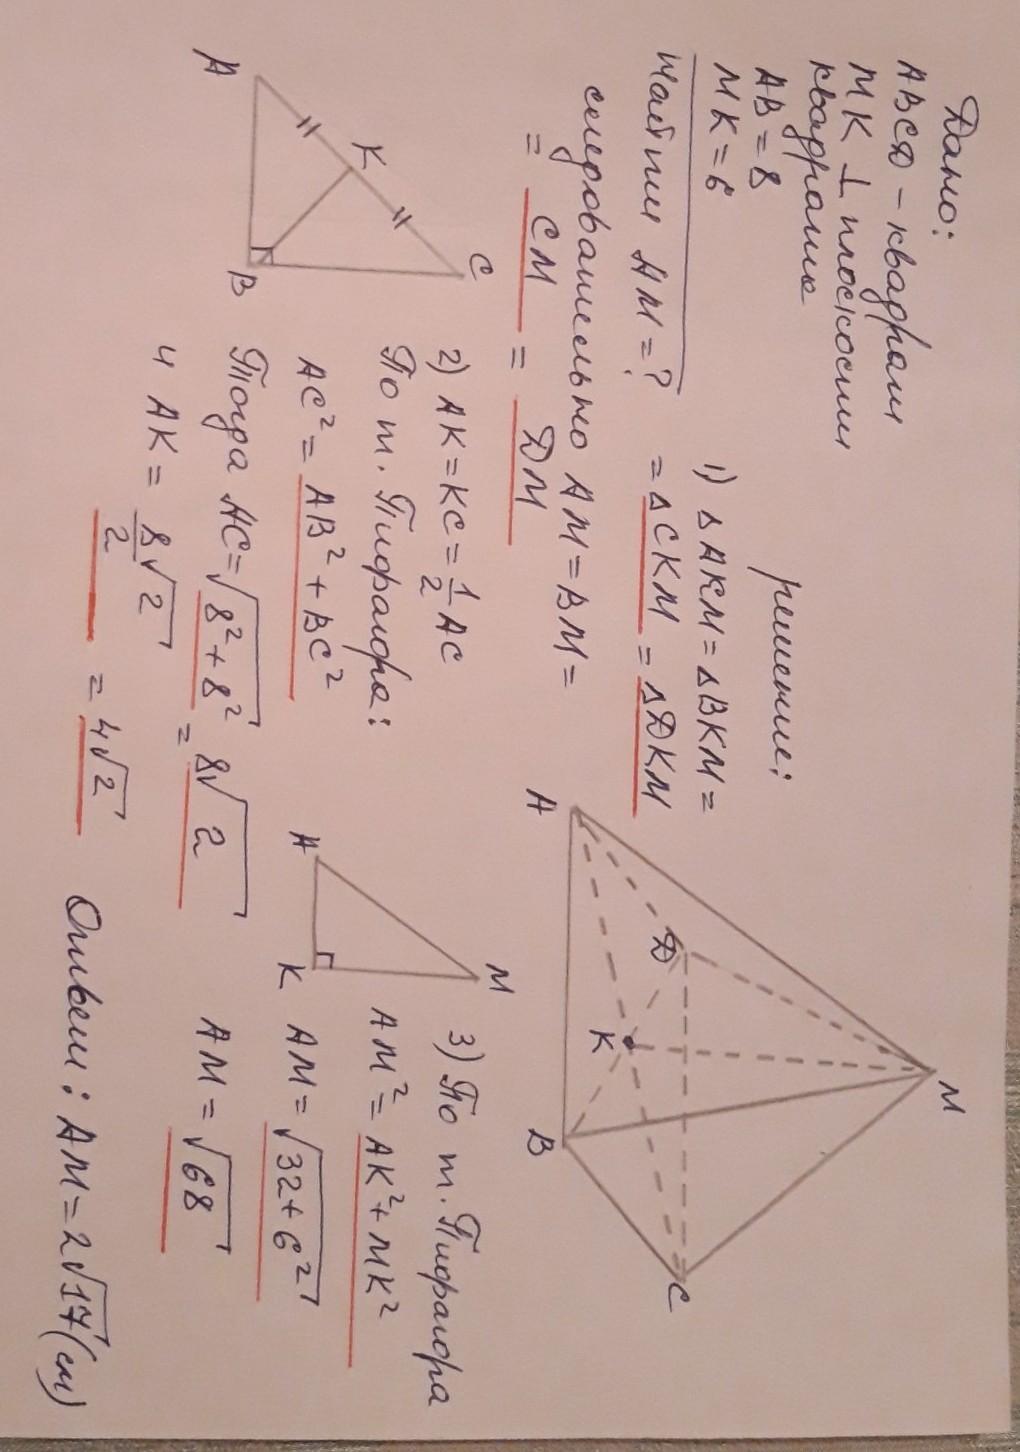 Дано:
ABCD – квадрат
MK ⊥ плоскости
квадрата
AB = 8
MK = 6
Найти AM = ?
решение:
1) △AKM = △BKM =
= △CKM = △DKM
следовательно AM = BM =
= CM = DM
2) AK = KC = 1/2 AC
По т. Пифагора:
AC² = AB² + BC²
Тогда AC = √8² + 8² = 8√2
и AK = 8√2/2 = 4√2
3) По т. Пифагора
AM² = AK² + MK²
AM = √32 + 6²
AM = √68
Ответ: AM = 2√17 (см)
A
B
C
K
A
K
M
A
B
C
D
K
M